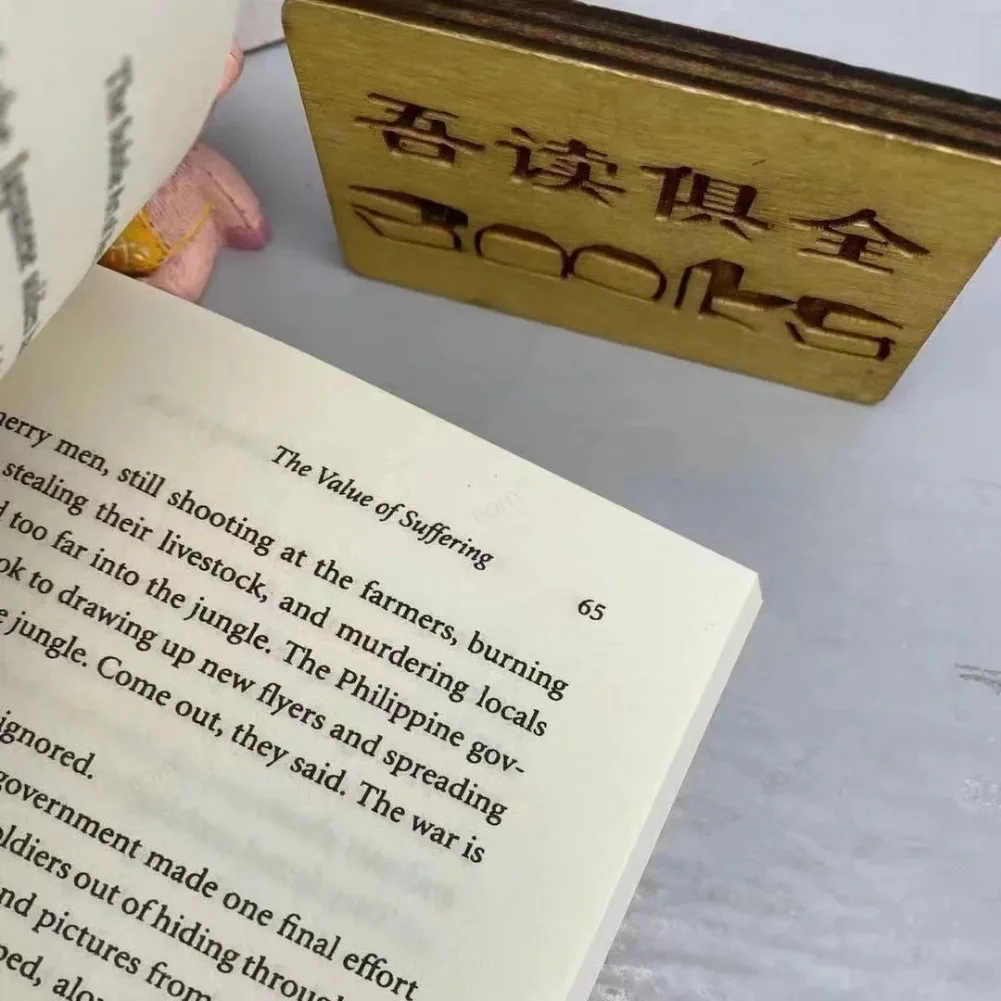 吾读俱全
Books
The Value of Suffering
65
merry men, still shooting at the farmers, burning
stealing their livestock, and murdering locals
too far into the jungle. The Philippine gov-
to drawing up new flyers and spreading
jungle. Come out, they said. The war is
ignored.
government made one final effort
out of hiding through
pictures from